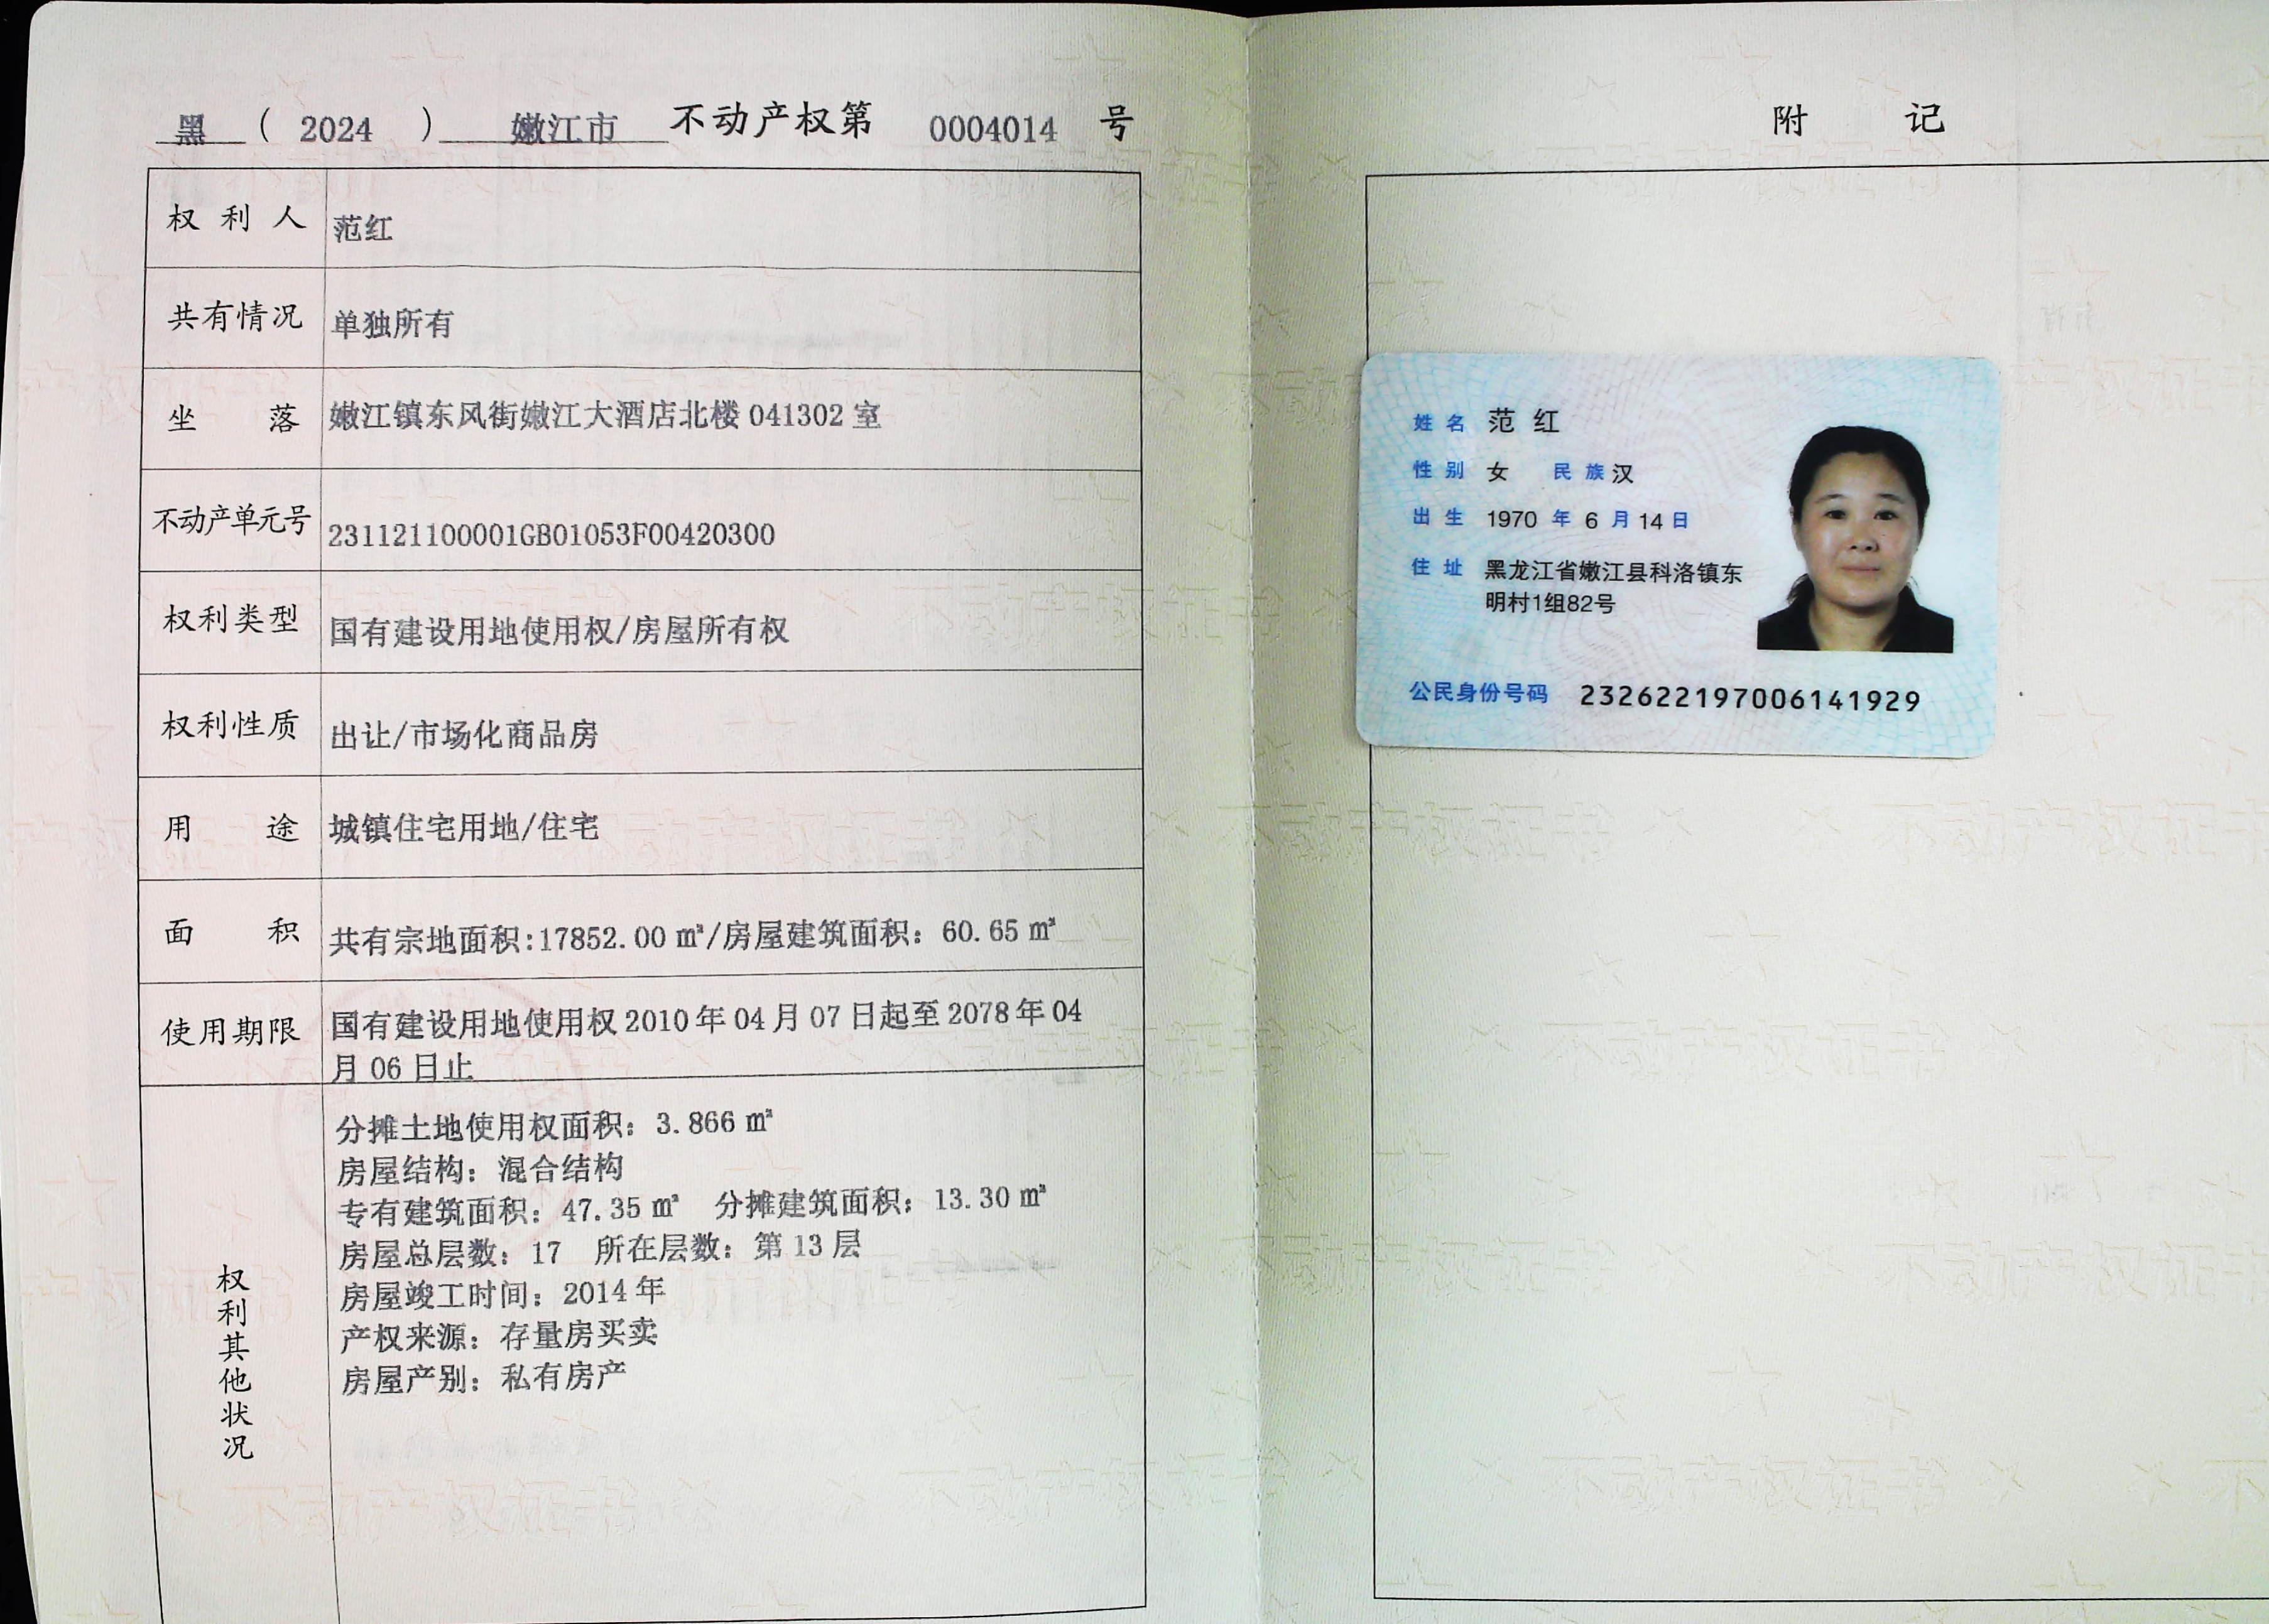 黑 ( 2024 ) 嫩江市 不动产权第 0004014 号
权利人 范红
共有情况 单独所有
坐落 嫩江镇东风街嫩江大酒店北楼 041302 室
不动产单元号 231121100001GB01053F00420300
权利类型 国有建设用地使用权/房屋所有权
权利性质 出让/市场化商品房
用途 城镇住宅用地/住宅
面积 共有宗地面积:17852.00 ㎡/房屋建筑面积：60.65 ㎡
使用期限 国有建设用地使用权 2010 年 04 月 07 日起至 2078 年 04
月 06 日止
权利其他状况
分摊土地使用权面积：3.866 ㎡
房屋结构：混合结构
专有建筑面积：47.35 ㎡ 分摊建筑面积：13.30 ㎡
房屋总层数：17 所在层数：第 13 层
房屋竣工时间：2014 年
产权来源：存量房买卖
房屋产别：私有房产
附 记
姓名 范红
性别 女 民族 汉
出生 1970 年 6 月 14 日
住址 黑龙江省嫩江县科洛镇东
明村1组82号
公民身份号码 232622197006141929